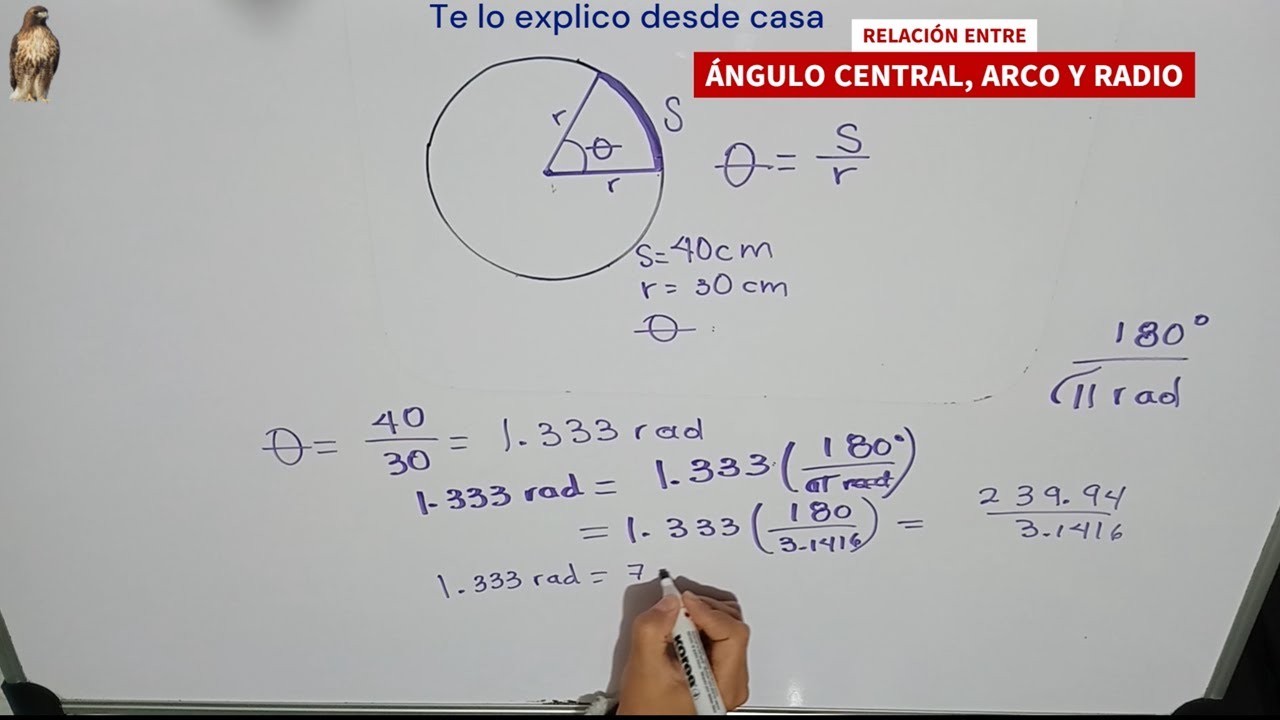 Te lo explico desde casa
RELACIÓN ENTRE
ÁNGULO CENTRAL, ARCO Y RADIO
r θ r S
θ = S/r
S = 40cm
r = 30 cm
θ
180°/π rad
θ = 40/30 = 1.333 rad
1.333 rad = 1.333 (180°/π rad)
= 1.333 (180/3.1416) = 239.94/3.1416
1.333 rad = 7
KORES